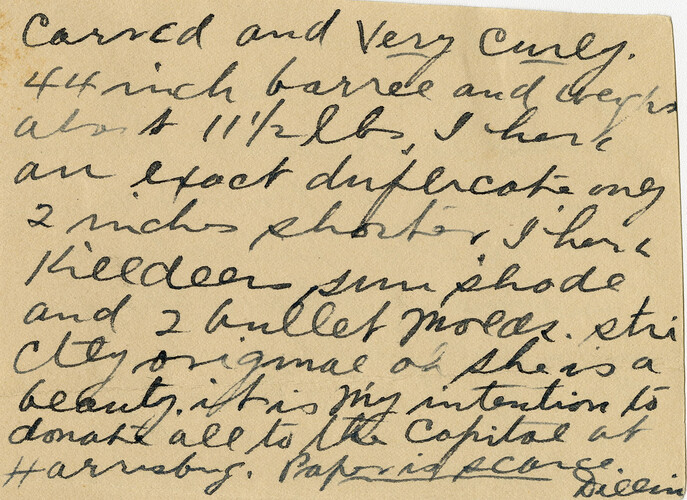 Carved and Very Curly.
44 inch barrel and weighs
about 11 1/2 lbs, I have
an exact duplicate only
2 inches shorter, I have
Killdeers sun shade
and 2 bullet molds. stri
ctly original oh she is a
beauty. it is my intention to
donate all to the Capital at
Harrisburg. Paper is scarce.
Dillin